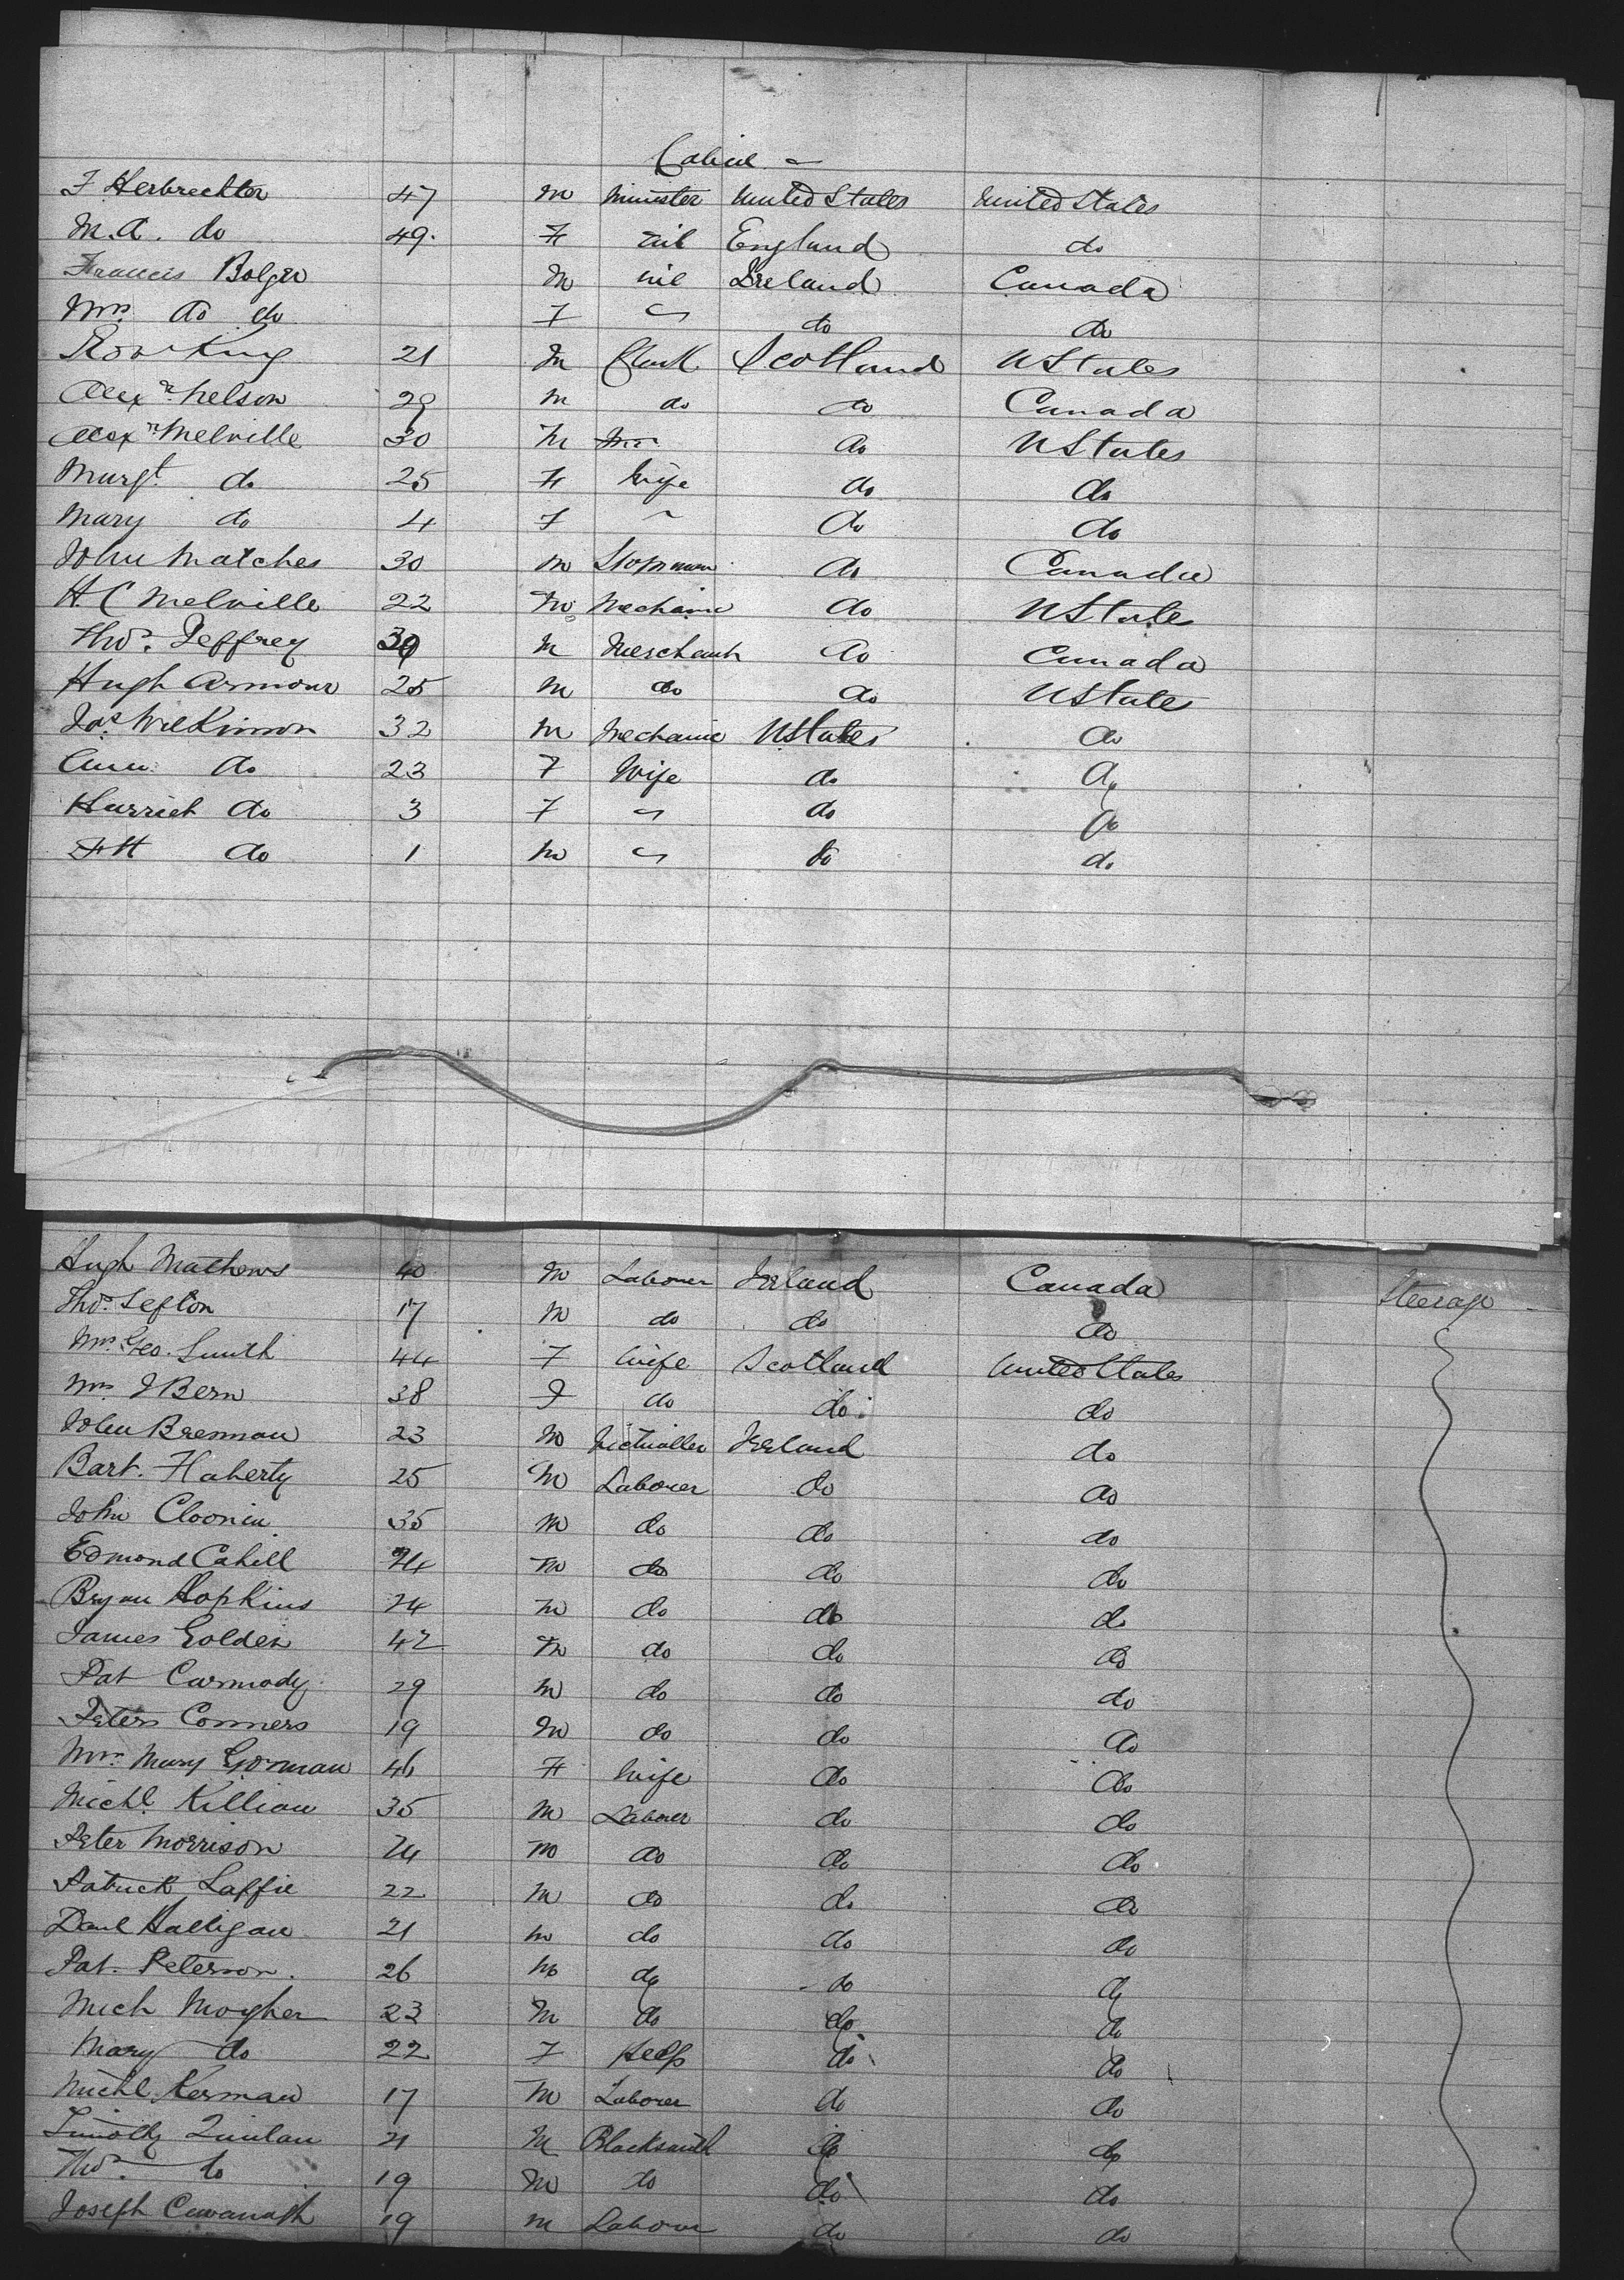 Cabin
F Herbrechter 47 M Minister United States United States
M.A. do 49 F nil England do
Francis Bolger M nil Ireland Canada
Mrs do do F " do do
Robt King 21 M Clerk Scotland U States
Alexr Nelson 29 M do do Canada
Alexr Melville 30 M do U States
Margt do 25 F Wife do do
Mary do 4 F " do do
John Matches 30 M do Canada
H. C Melville 22 M Mechanic do U State
Thos. Jeffrey 39 M Merchant do Canada
Hugh Armour 25 M do do U State
Jas Wilkinson 32 M Mechanic U States do
Ann do 23 F Wife do do
Harriet do 3 F " do do
F H do 1 M " do do
Hugh Mathews 40 M Laborer Ireland Canada Steerage
Thos. Sefton 17 M do do do
Mrs Geo. Smith 44 F Wife Scotland United States
Mrs J Bern 38 F do do do
John Brennan 23 M Victualler Ireland do
Bart. Flaherty 25 M Laborer do do
John Cloonin 35 M do do do
Edmond Cahill 24 M do do do
Bryan Hopkins 24 M do do do
James Golden 42 M do do do
Pat Carmody 29 M do do do
Peter Conners 19 M do do do
Mrs Mary Gorman 46 F Wife do do
Michl. Killian 35 M Laborer do do
Peter Morrison 24 M do do do
Patrick Laffie 22 M do do do
Danl Halligan 21 M do do do
Pat. Peterson. 26 M do do do
Mich Mogher 23 M do do do
Mary do 22 F Help do do
Michl. Kernan 17 M Laborer do do
Timothy Quinlan 21 M Blacksmith do do
Thos. do 19 M do do do
Joseph Cavanagh 19 M Laborer do do